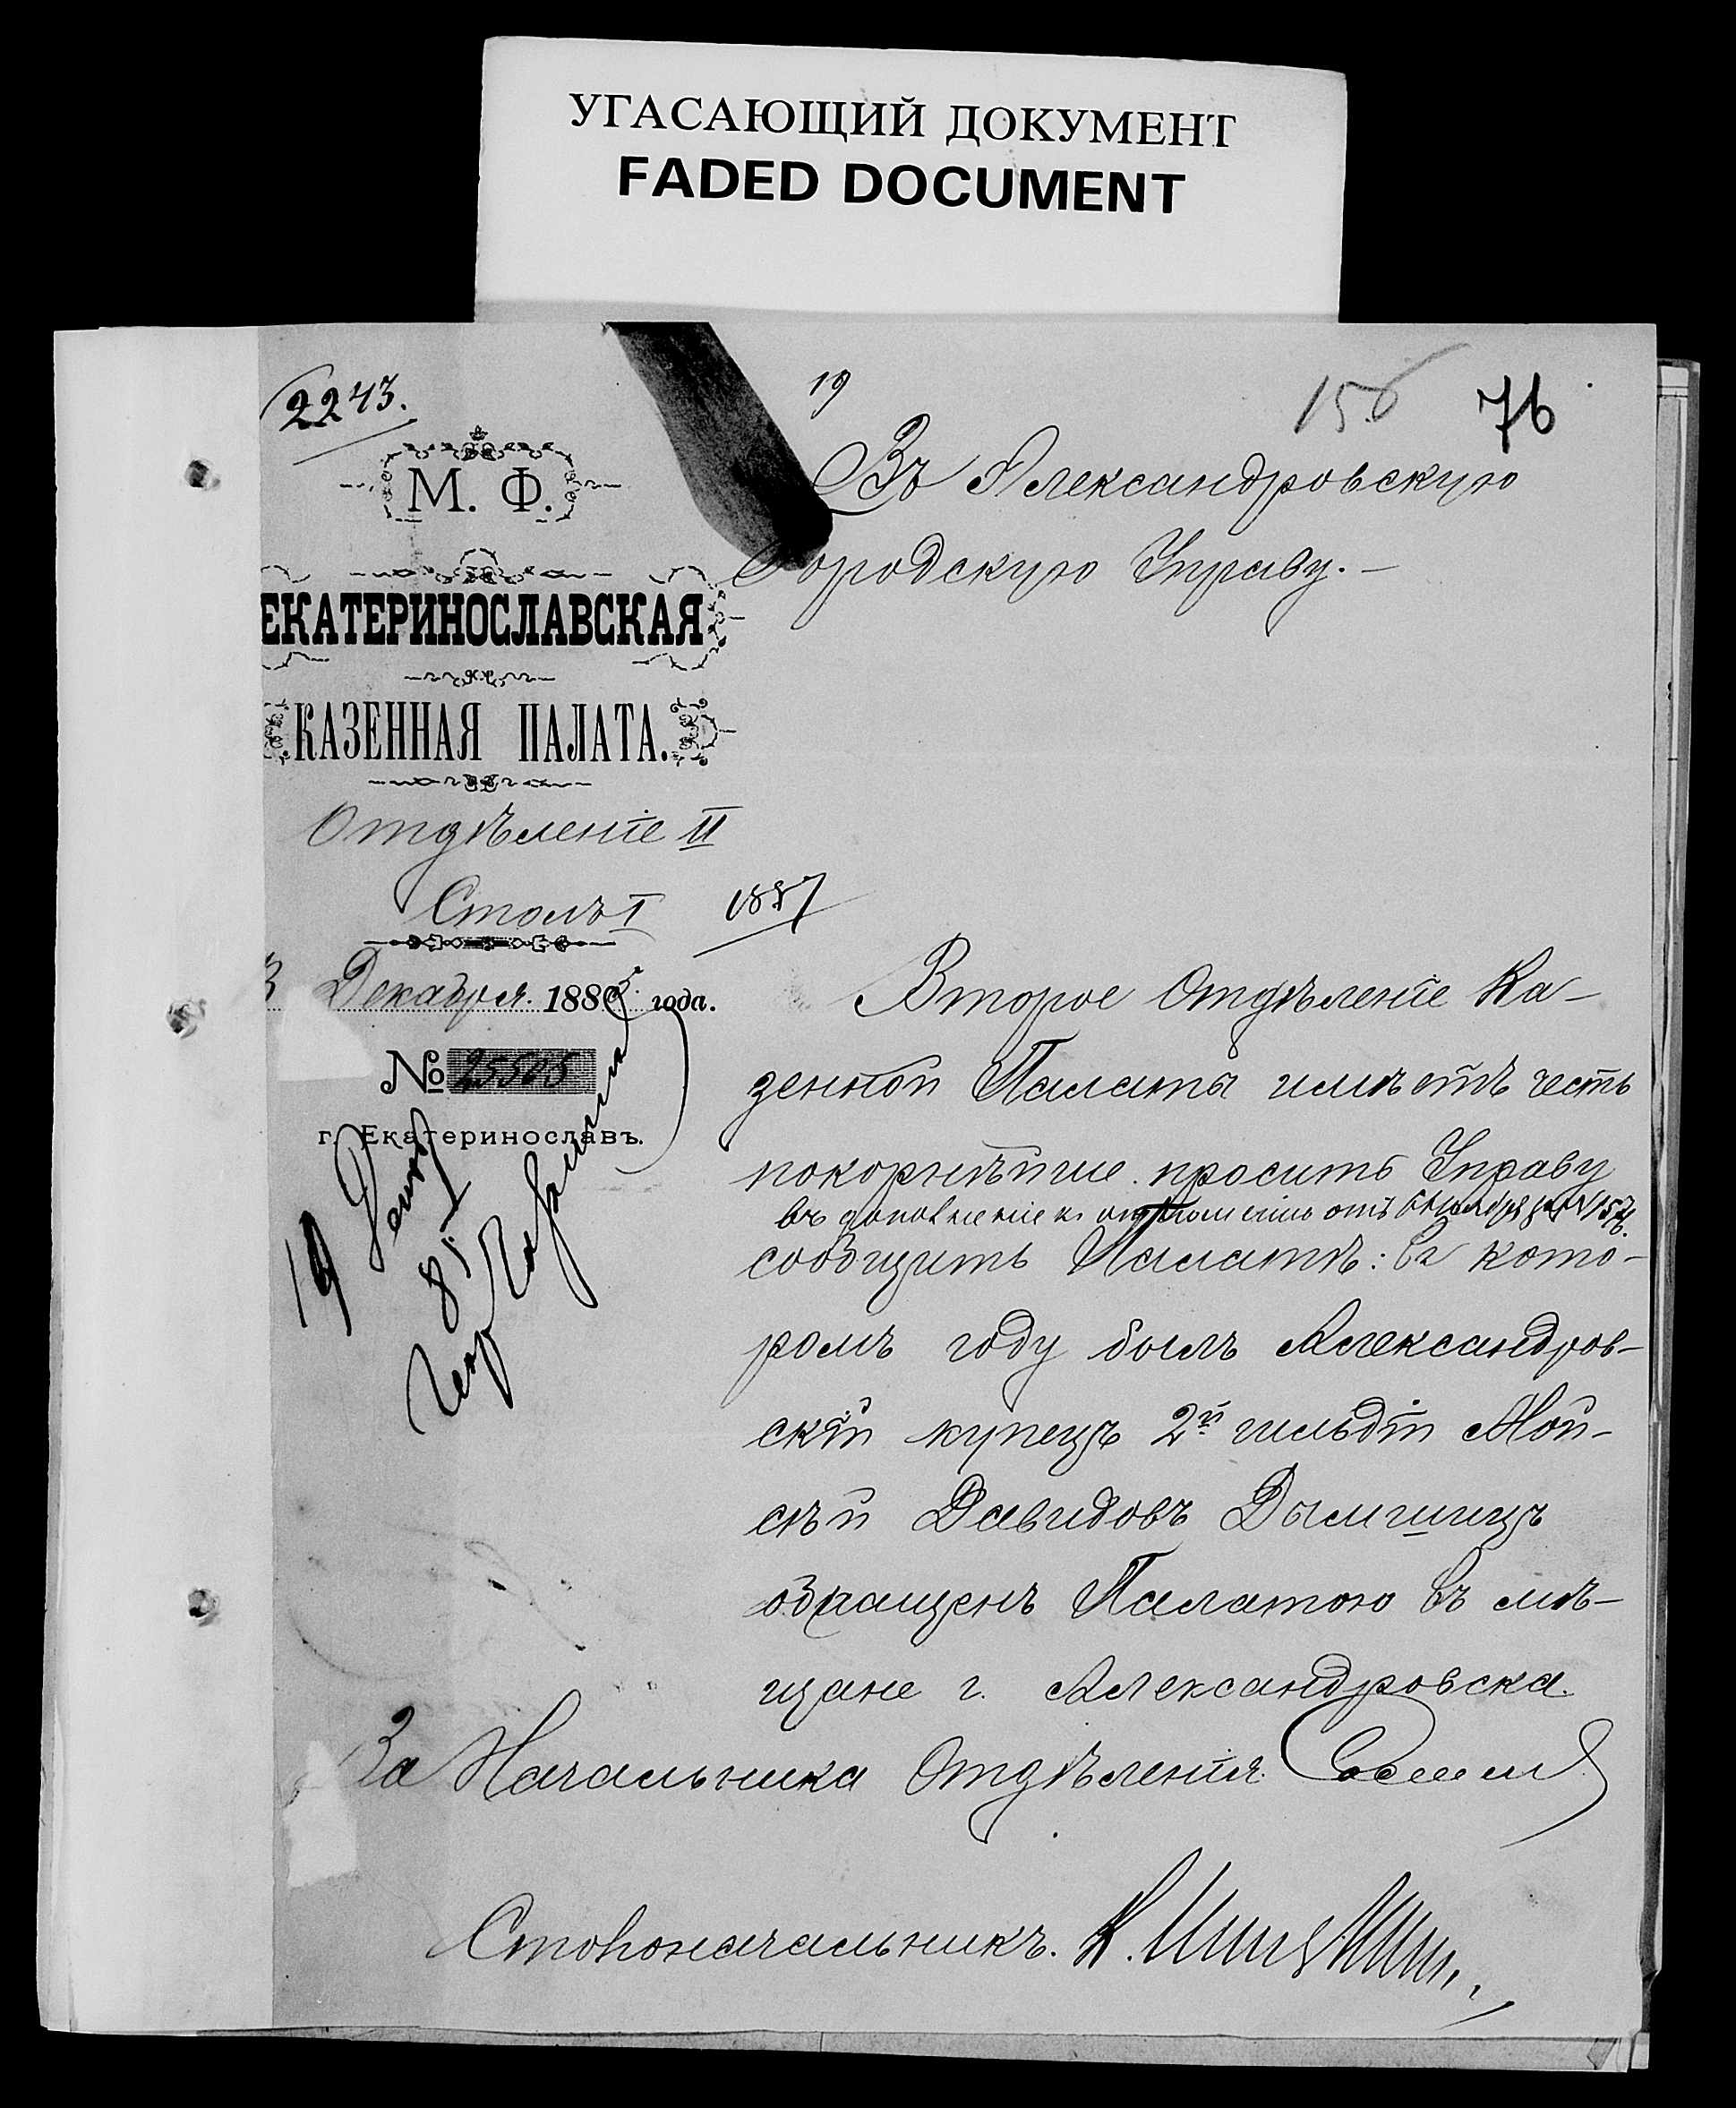 УГАСАЮЩИЙ ДОКУМЕНТ
FADED DOCUMENT
2243.
19
156
76
М. Ф.
ЕКАТЕРИНОСЛАВСКАЯ
КАЗЕННАЯ ПАЛАТА.
Отдѣленіе II
Столъ I
Декабря 1885 года.
№ 25505
г. Екатеринославъ.
19
85
Въ Александровскую
Городскую Управу.—
1887
Второе Отдѣленіе Ка-
зенной Палаты имѣетъ честь
покорнѣйше просить Управу
въ дополненіе къ отношенію отъ
сообщить Палатѣ: въ кото-
ромъ году былъ Александров-
скій купецъ 2й гильдіи Мой-
сѣй Давидовъ Дымшицъ
обращенъ Палатою въ мѣ-
щане г. Александровска.
За Начальника Отдѣленія
Столоначальникъ.